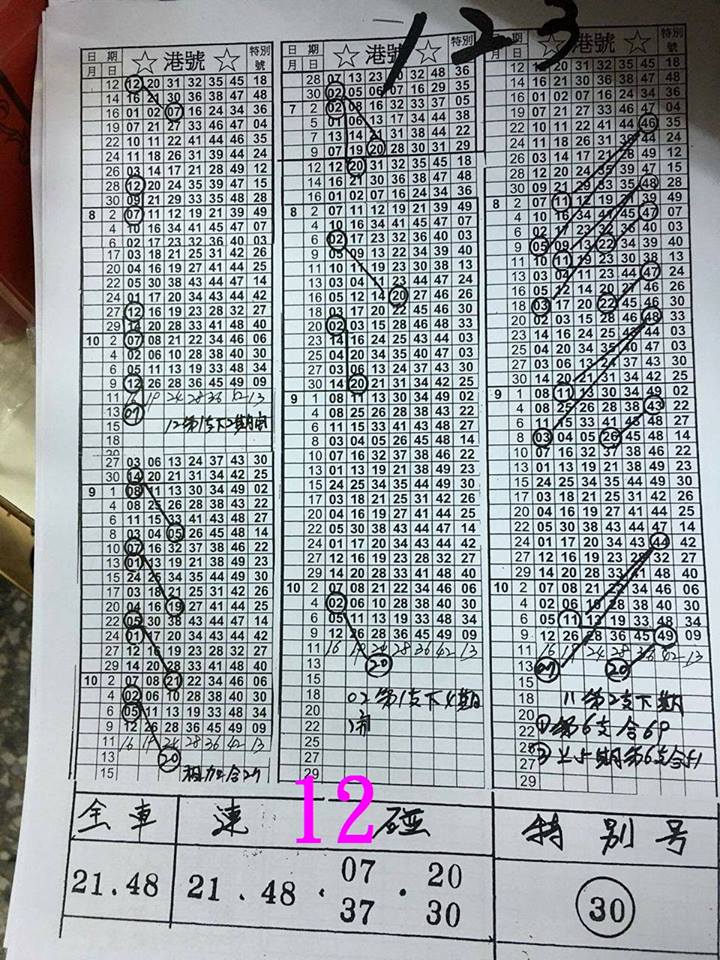 1 2 3
日 期 ☆ 港號 ☆ 特別號
月 日
12 12 20 31 32 35 45 18
14 16 21 30 36 38 47 48
16 01 02 07 16 24 34 36
07 21 27 33 46 47 04
22 10 11 22 41 44 46 35
24 11 18 26 31 39 44 24
26 03 14 17 21 28 49 12
28 12 20 24 35 39 47 15
30 09 21 29 33 35 48 28
8 2 07 11 12 19 21 39 49
4 10 16 34 41 45 47 07
6 02 17 23 32 36 40 03
17 03 18 21 25 31 42 26
20 04 16 19 27 41 44 25
22 05 30 38 43 44 47 14
24 01 17 20 34 43 44 42
27 12 16 19 23 28 32 27
29 14 20 28 33 41 48 40
10 2 07 08 21 22 34 46 06
4 02 06 10 28 38 40 30
9 12 26 28 36 45 49 09
11 16 19 24 28 36 42 13
13 07
15 12第1支下2期開
18
27 03 06 13 24 37 43 30
30 14 20 21 31 34 42 25
9 1 08 11 13 30 34 49 02
4 08 25 26 28 38 43 22
6 11 15 33 41 43 48 27
8 03 04 05 26 45 48 14
10 07 16 32 37 38 46 22
13 01 13 19 21 38 49 23
15 24 25 34 35 44 49 30
17 03 18 21 25 31 42 26
20 04 16 19 27 41 44 25
22 05 30 38 43 44 47 14
24 01 17 20 34 43 44 42
27 12 16 19 23 28 32 27
29 14 20 28 33 41 48 40
10 2 07 08 21 22 34 46 06
4 02 06 10 28 38 40 30
6 05 11 13 19 33 48 34
9 12 26 28 36 45 49 09
11 16 19 24 28 36 42 13
13 20
15 相加合27
日 期 ☆ 港號 ☆ 特別號
月 日
28 07 13 23 32 48 36
30 02 05 06 07 16 29 35
7 2 02 08 16 32 33 37 05
5 01 06 13 17 34 44 38
7 13 14 31 38 44 22
9 07 19 20 28 30 31 29
12 12 20 31 32 35 45 18
14 16 21 30 36 38 47 48
16 01 02 07 16 24 34 36
8 2 07 11 12 19 21 39 49
4 10 16 34 41 45 47 07
6 02 17 23 32 36 40 03
9 05 09 13 22 34 39 40
11 10 11 19 23 30 38 13
13 03 04 11 23 44 47 24
16 05 12 14 20 27 46 26
18 03 17 20 22 45 46 30
20 02 03 15 28 46 48 33
23 14 16 24 25 43 44 03
25 04 20 34 35 40 47 03
27 03 06 13 24 37 43 30
30 14 20 21 31 34 42 25
9 1 08 11 13 30 34 49 02
4 08 25 26 28 38 43 22
6 11 15 33 41 43 48 27
8 03 04 05 26 45 48 14
10 07 16 32 37 38 46 22
13 01 13 19 21 38 49 23
15 24 25 34 35 44 49 30
17 03 18 21 25 31 42 26
20 04 16 19 27 41 44 25
22 05 30 38 43 44 47 14
24 01 17 20 34 43 44 42
27 12 16 19 23 28 32 27
29 14 20 28 33 41 48 40
10 2 07 08 21 22 34 46 06
4 02 06 10 28 38 40 30
6 05 11 13 19 33 48 34
9 12 26 28 36 45 49 09
11 16 19 24 28 36 42 13
13 20
15
18 02第1支下4期
20 開
22
25
27
29
日 期 ☆ 港號 ☆ 特別號
月 日
12 12 20 31 32 35 45 18
14 16 21 30 36 38 47 48
16 01 02 07 16 24 34 36
19 07 21 27 33 46 47 04
22 10 11 22 41 44 46 35
24 11 18 26 31 39 44 24
26 03 14 17 21 28 49 12
28 12 20 24 35 39 47 15
30 09 21 29 33 35 48 28
8 2 07 11 12 19 21 39 49
4 10 16 34 41 45 47 07
6 02 17 23 32 36 40 03
9 05 09 13 22 34 39 40
11 10 11 19 23 30 38 13
13 03 04 11 23 44 47 24
16 05 12 14 20 27 46 26
18 03 17 20 22 45 46 30
20 02 03 15 28 46 48 33
23 14 16 24 25 43 44 03
25 04 20 34 35 40 47 03
27 03 06 13 24 37 43 30
30 14 20 21 31 34 42 25
9 1 08 11 13 30 34 49 02
4 08 25 26 28 38 43 22
6 11 15 33 41 43 48 27
8 03 04 05 26 45 48 14
10 07 16 32 37 38 46 22
13 01 13 19 21 38 49 23
15 24 25 34 35 44 49 30
17 03 18 21 25 31 42 26
20 04 16 19 27 41 44 25
22 05 30 38 43 44 47 14
24 01 17 20 34 43 44 42
27 12 16 19 23 28 32 27
29 14 20 28 33 41 48 40
10 2 07 08 21 22 34 46 06
4 02 06 10 28 38 40 30
6 05 11 13 19 33 48 34
9 12 26 28 36 45 49 09
11 16 19 24 28 36 42 13
13 07 20
15
18 11第2支下期
20 ①第6支合69
22
25 ②上期第6支合
27
29
全車 連 12 碰 特別号
21.48 21.48 . 07 37 . 20 30 30